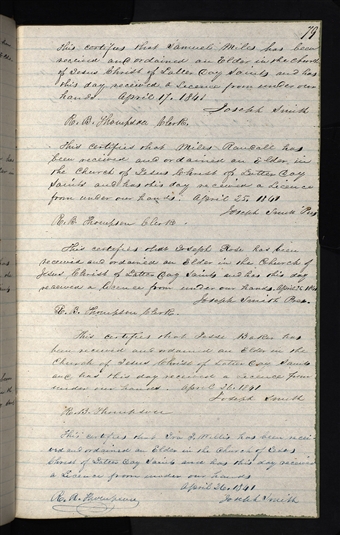 79
This certifies that Samuel Miles has been
received and ordained an Elder in the Church
of Jesus Christ of Latter Day Saints and has
this day received a Licence from under our
hands April 17. 1841
Joseph Smith
R. B. Thompson Clerk.
This certifies that Miles Randall has
been received and ordained an Elder, in
the Church of Jesus Christ of Latter Day
Saints and has this day received a Licence
from under our hands. April 25. 1841
Joseph Smith Pres
R. B. Thompson Clerk
This certifies that Joseph Rose has been
received and ordained an Elder in the Church of
Jesus Christ of Latter Day Saints and has this day
received a Licence from under our hands. April 26 1841
Joseph Smith Pres.
R. B. Thompson Clerk.
This certifies that Jesse Baker has
been received and ordained an Elder in the
Church of Jesus Christ of Latter Day Saints
and has this day received a Licence from
under our hands April 26. 1841
Joseph Smith
R. B. Thompson
This certifies that has been recei
ved and ordained an Elder in the Church of Jesus
Christ of Latter Day Saints and has this day received
a Licence from under our hands
April 26. 1841
R. B. Thompson Joseph Smith